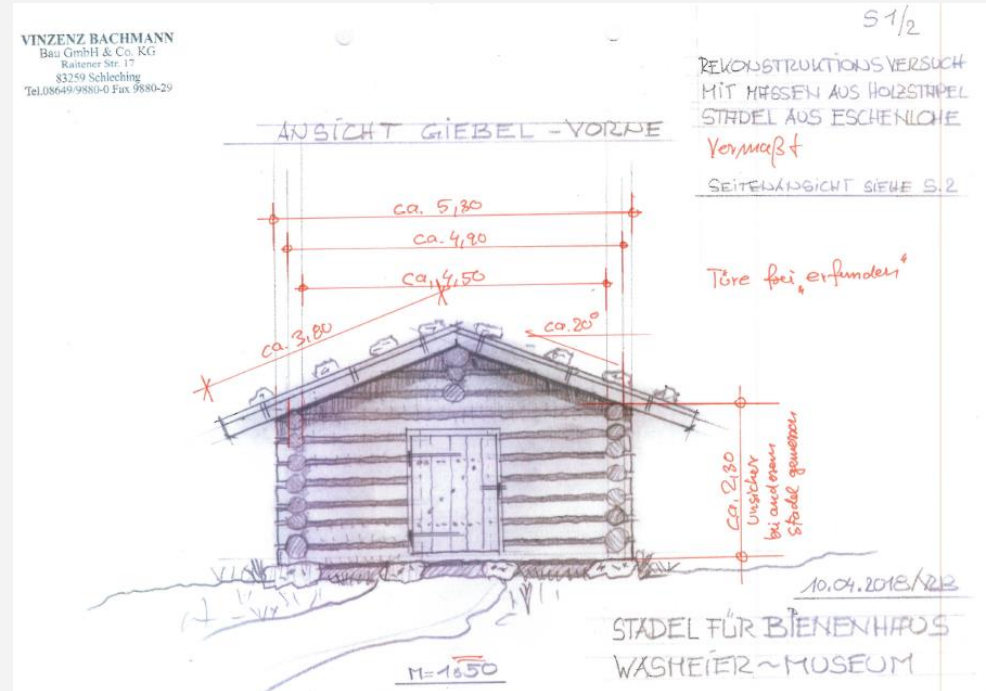 VINZENZ BACHMANN
Bau GmbH & Co. KG
Raitener Str. 17
83259 Schleching
Tel.08649/9880-0 Fax 9880-29
S 1/2
REKONSTRUKTIONSVERSUCH
MIT MASSEN AUS HOLZSTAPEL
STADEL AUS ESCHENLOHE
Vermaßt
SEITENANSICHT SIEHE S.2
ANSICHT GIEBEL - VORNE
ca. 5,30
ca. 4,90
ca. 4,50
Türe frei „erfunden"
ca. 3,80
ca. 20°
ca. 2,30
unsicher
bei anderem
Stadel gemessen
10.04.2018
STADEL FÜR BIENENHAUS
WASMEIER~MUSEUM
M=1:50